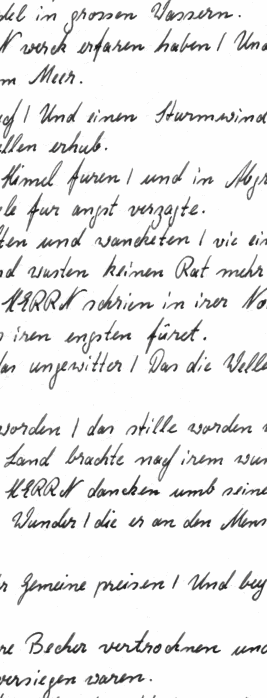 del in grossen Wassern.
N werck erfaren haben / Und
m Meer.
ach / Und einen Sturmwind
ellen erhub.
Himel furen / und in Abgr
ele fur angst verzagte.
ten und wancketen / wie ein
nd wusten keinen Rat mehr
HERRN schrien in irer No
s iren engsten füret.
das ungewitter / Das die Welle
worden / das stille worden
Land brachte nach irem wun
HERRN dancken umb seine
Wunder / die er an den Mens
r Gemeine preisen / Und bey
re Becher vertrocknen und
versiegen waren.